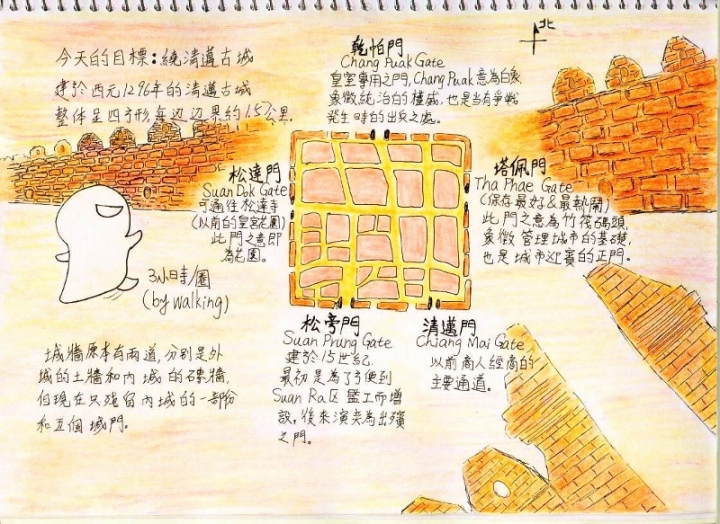 北
今天的目標：繞清邁古城
建於西元1296年的清邁古城
整体呈四方形,每边边界約1.5公里.
乾怕門
Chang Puak Gate
皇室專用之門, Chang Puak意為白象
象徵統治的權威, 也是当有爭戰
発生時的出兵之處。
松達門
Suan Dok Gate
可通往松達寺
(以前的皇宮花園)
此門之意即
為花園。
塔佩門
Tha Phae Gate
(保存最好&最熱鬧)
此門之意為竹筏碼頭,
象徵管理城市的基礎,
也是城市迎賓的正門。
3小時/圈
(by walking)
城牆原本有兩道,分別是外
城的土牆和內城的磚牆,
但現在只殘留內城的一部份
和五個城門。
松旁門
Suan Prung Gate
建於15世紀
最初是為了方便到
Suan Ra区監工而增
設, 後來演変為出殯
之門。
清邁門
Chiang Mai Gate
以前商人經商的
主要通道。